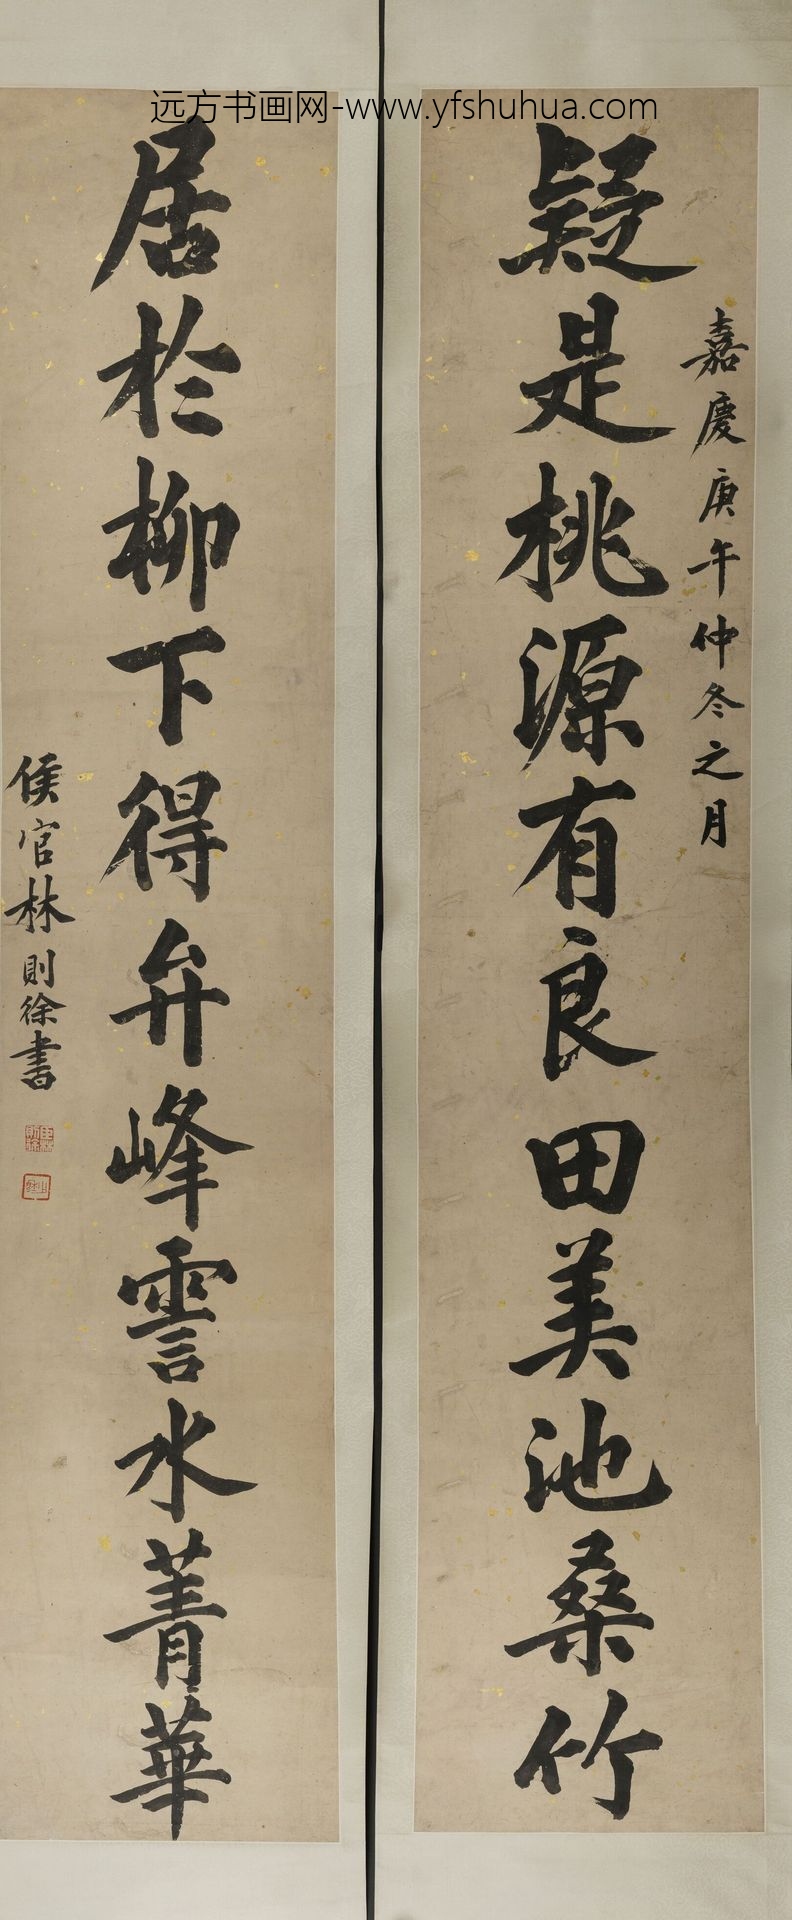 远方书画网-www.yfshuhua.com
嘉慶庚午仲冬之月
疑是桃源有良田美池桑竹
居於柳下得弁峰霅水菁華
侯官林則徐書